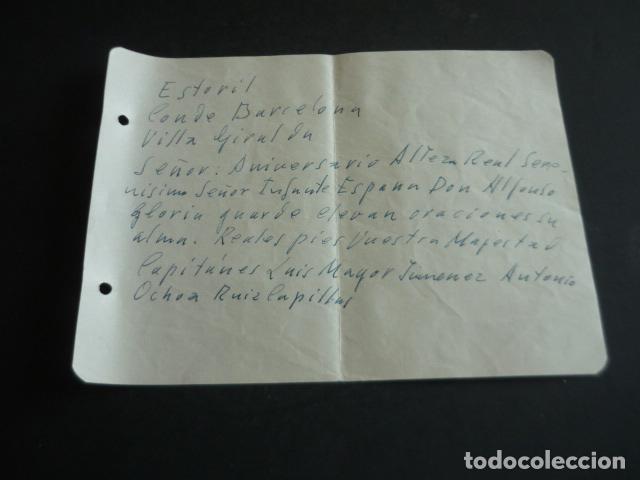 Estoril
Conde Barcelona
Villa Giralda
Señor: Aniversario Alteza Real Sere-
nisimo Señor Infante España Don Alfonso
Gloria guarde elevan oraciones su
alma. Reales pies Vuestra Majestad
Capitánes Luis Mayor Jumenez Antonio
Ochoa Ruizcapillas
todocoleccion